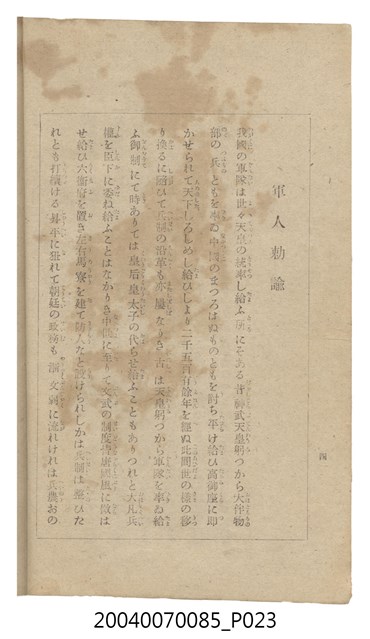 軍人勅諭
我國の軍隊は世々天皇の統率し給ふ所にそある昔神武天皇躬つから大伴物
部の兵ともを率ゐ中國のまつろはぬものともを討ち平け給ひ高御座に即
かせられて天下しろしめし給ひしより二千五百有餘年を經ぬ此間世の樣の移
り換るに隨ひて兵制の沿革も亦屢なりき古は天皇躬つから軍隊を率ゐ給
ふ御制にて時ありては皇后皇太子の代らせ給ふこともありつれと大凡兵
權を臣下に委ね給ふことはなかりき中世に至りて文武の制度皆唐國風に傚は
せ給ひ六衞府を置き左右馬寮を建て防人なと設けられしかは兵制は整ひた
れとも打續ける昇平に狃れて朝廷の政務も漸文弱に流れけれは兵農おの
四
20040070085_P023